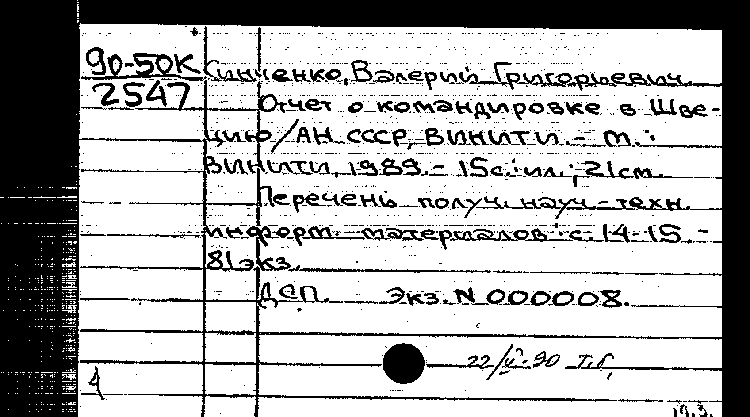 90-50К Кинченко, Валерий Григорьевич.
2547 Отчет о командировке в Шве-
цию / АН СССР, ВИНИТИ. - М. :
ВИНИТИ, 1989. - 15 с. : ил. ; 21 см.
Перечень получ. науч.-техн.
информ. материалов : с. 14-15. -
81 экз.
ДСП. Экз. N 000008.
22/V-90 Т.Г.
4
19.3.